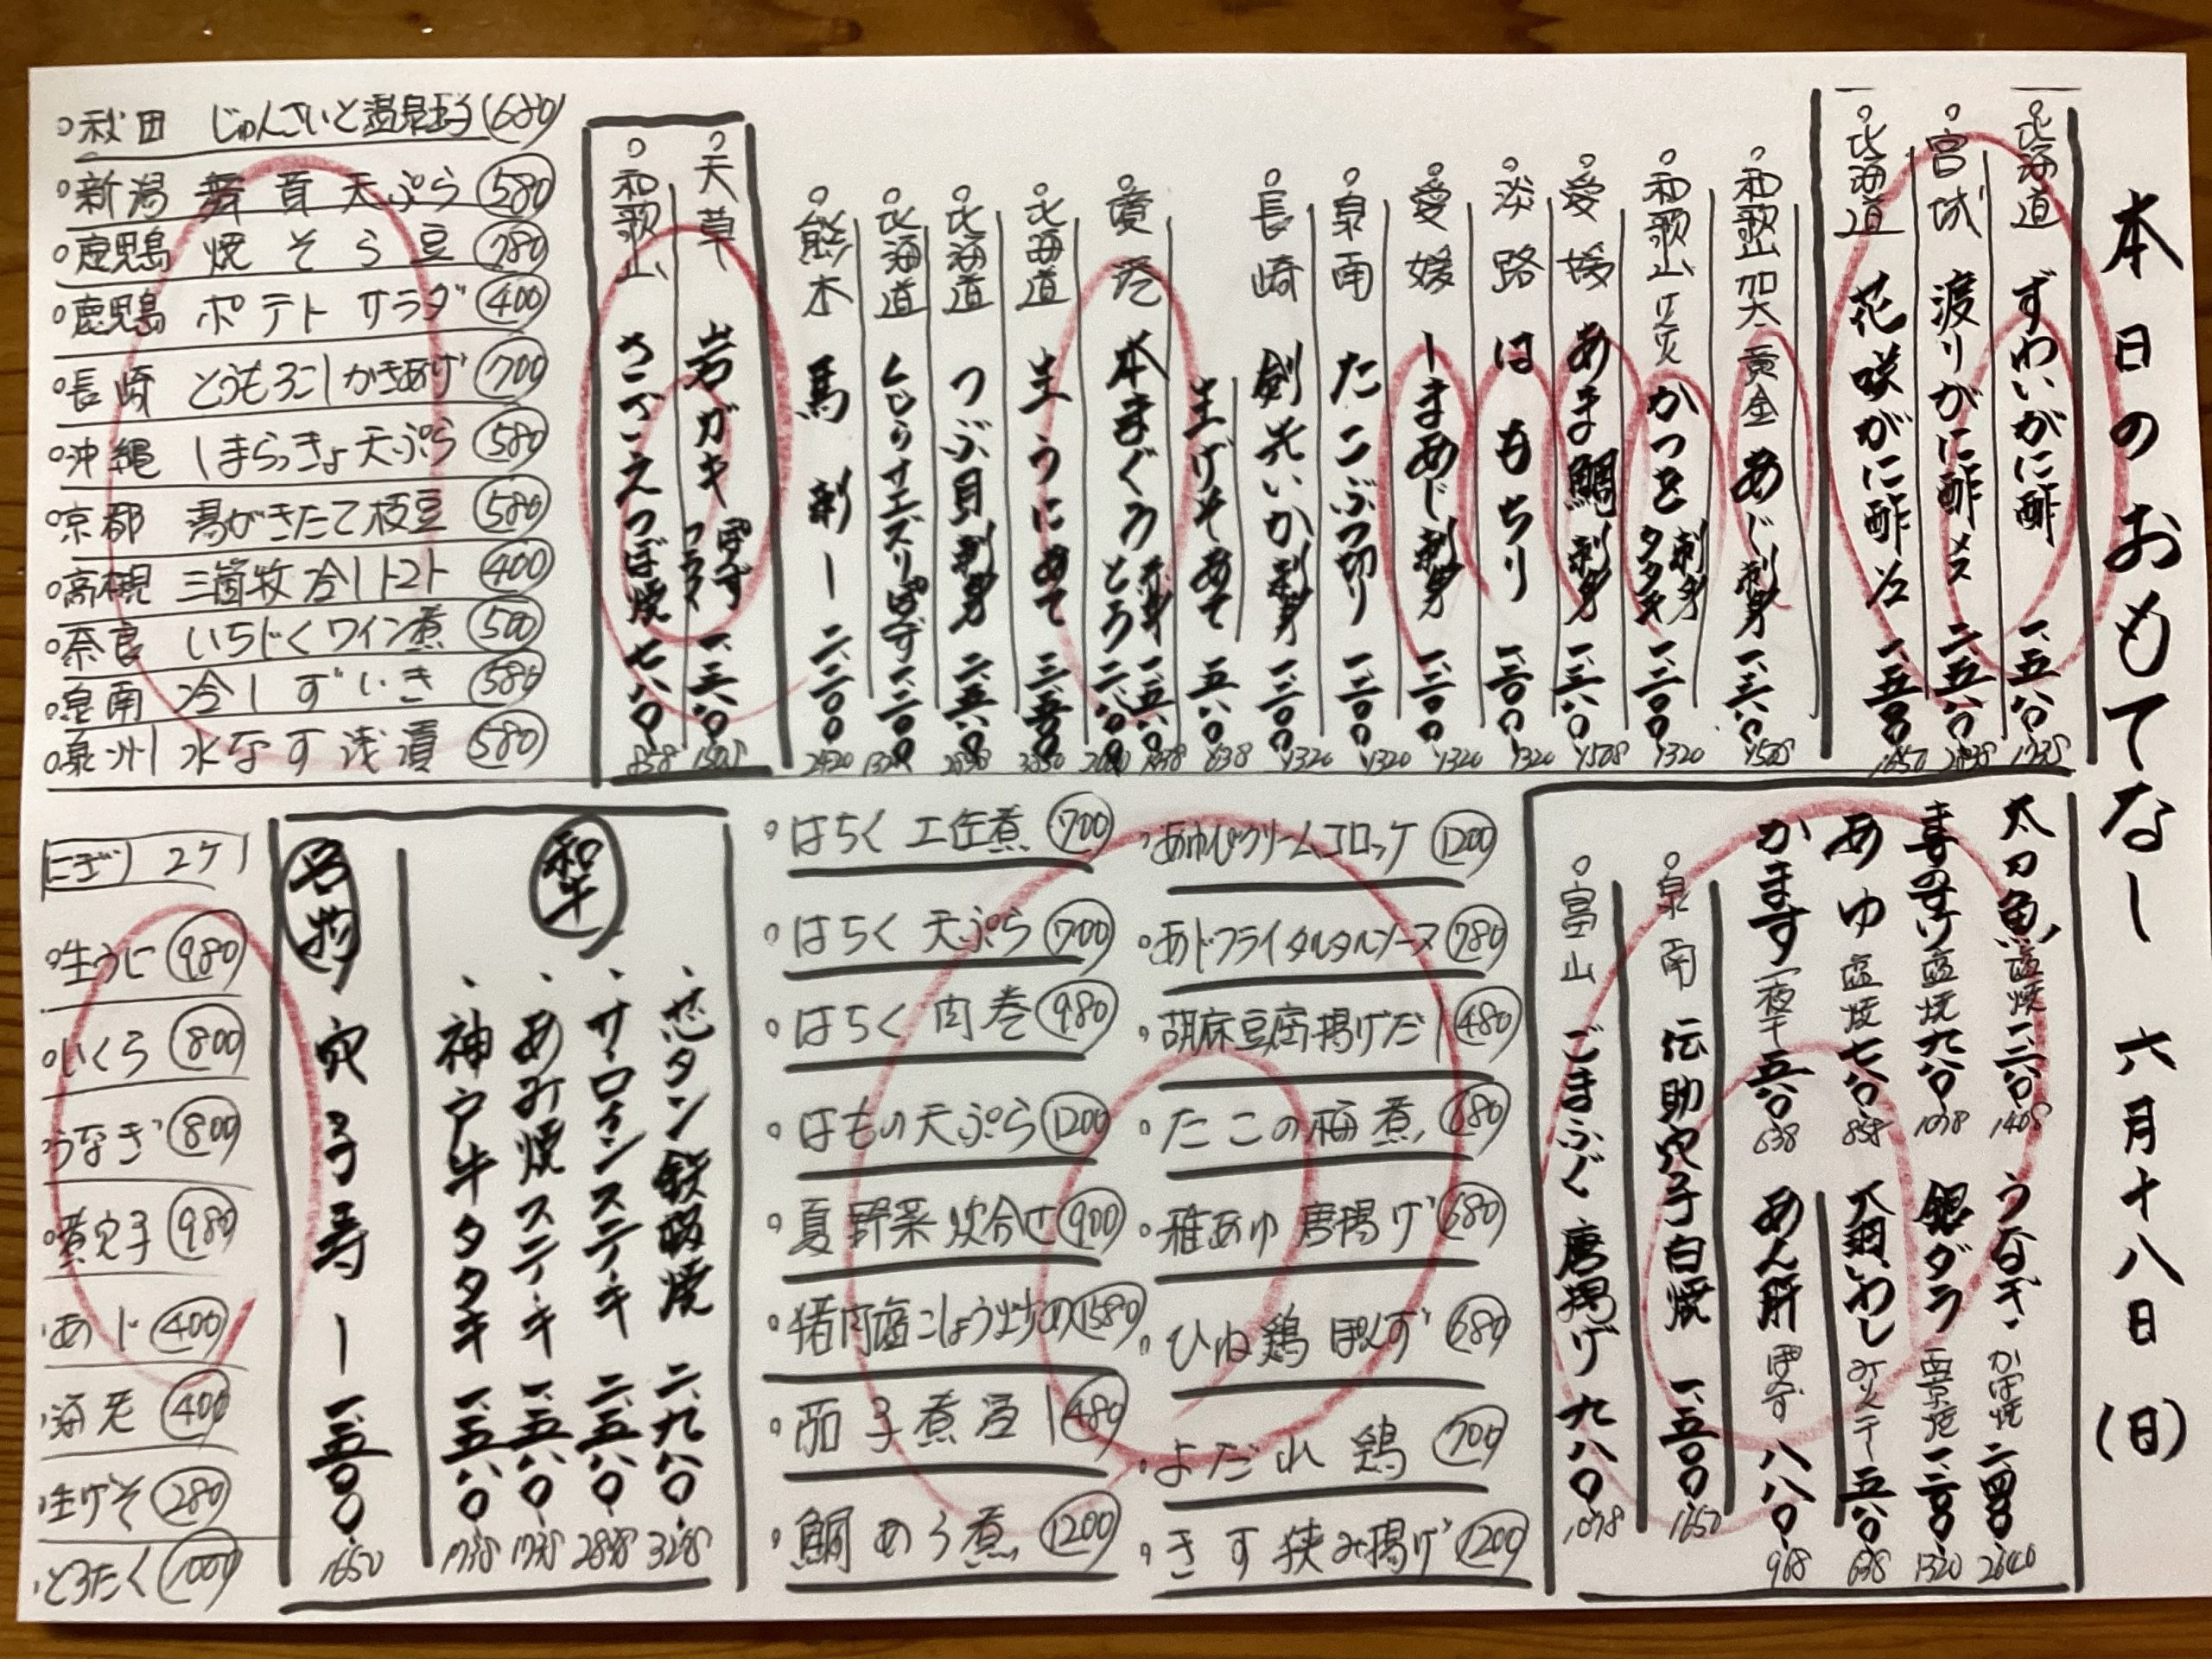 本日のおもてなし 六月十八日(日)
北海道 ずわいがに酢 一、五八〇 1738
宮城 渡りがに酢 メス 二、五八〇 2838
北海道 花咲がに酢 一、五〇〇 1650
和歌山加太 黄金あじ刺身 一、三八〇 1508
和歌山 かつを 刺身 タタキ 一、二〇〇 1320
愛媛 あま鯛刺身 一、三八〇 1508
淡路 はもちり 一、二〇〇 1320
愛媛 しまあじ刺身 一、二〇〇 1320
泉南 たこぶつ切り 一、二〇〇 1320
長崎 剣先いか刺身 一、二〇〇 1320
生げそあて 五八〇 638
本まぐろ 赤身 一、五八〇 とろ 二、八〇〇
北海道 生うにあて 三、五〇〇 3850
北海道 つぶ貝刺身 二、五八〇 2838
北海道 くじらサエズリぽんず 一、二〇〇 1320
熊本 馬刺し 二、二〇〇 2420
天草 岩ガキ ぽんず フライ 一、三八〇 1508
和歌山 さざえつぼ焼 七八〇 858
秋田 じゅんさいと温泉玉子 680
新潟 舞茸天ぷら 580
鹿児島 焼そら豆 780
鹿児島 ポテトサラダ 400
長崎 とうもろこしかきあげ 700
沖縄 しまらっきょ天ぷら 580
京都 湯がきたて枝豆 580
高槻 三箇牧冷しトマト 400
奈良 いちじくワイン煮 500
泉南 冷しずいき 580
泉州 水なす浅漬 580
太刀魚 塩焼 一、二八〇 1408
うなぎ かば焼 二、四〇〇 2640
喜のすけ 塩焼 九八〇 1078
銀ダラ 西京焼 一、二〇〇 1320
あゆ 塩焼 七八〇 858
大羽いわし 一干し 五八〇 638
かます 一夜干 五八〇 638
あん肝 ぽんず 八八〇 968
泉南 伝助穴子白焼 一、五〇〇 1650
富山 ごまふぐ唐揚げ 九八〇 1078
クリームコロッケ 1200
あじフライタルタルソース 780
胡麻豆腐揚げだし 480
たこの梅煮 680
稚あゆ唐揚げ 680
ひね鶏ぽんず 680
よだれ鶏 700
きす挟み揚げ 1200
はちく土佐煮 700
はちく天ぷら 700
はちく肉巻 980
はもの天ぷら 1200
夏野菜炊合せ 900
猪肉塩こしょう 1580
茄子煮浸し 480
鯛あら煮 1200
和牛
芯タン鉄板焼 二、九八〇 3278
サーロインステーキ 二、五八〇 2838
あみ焼ステーキ 一、五八〇 1738
神戸牛タタキ 一、五八〇 1738
名物 穴子寿し 一、五〇〇 1650
にぎり 2ケ
生うに 980
いくら 800
うなぎ 800
煮穴子 980
あじ 400
海老 400
生げそ 280
とろたく 1000